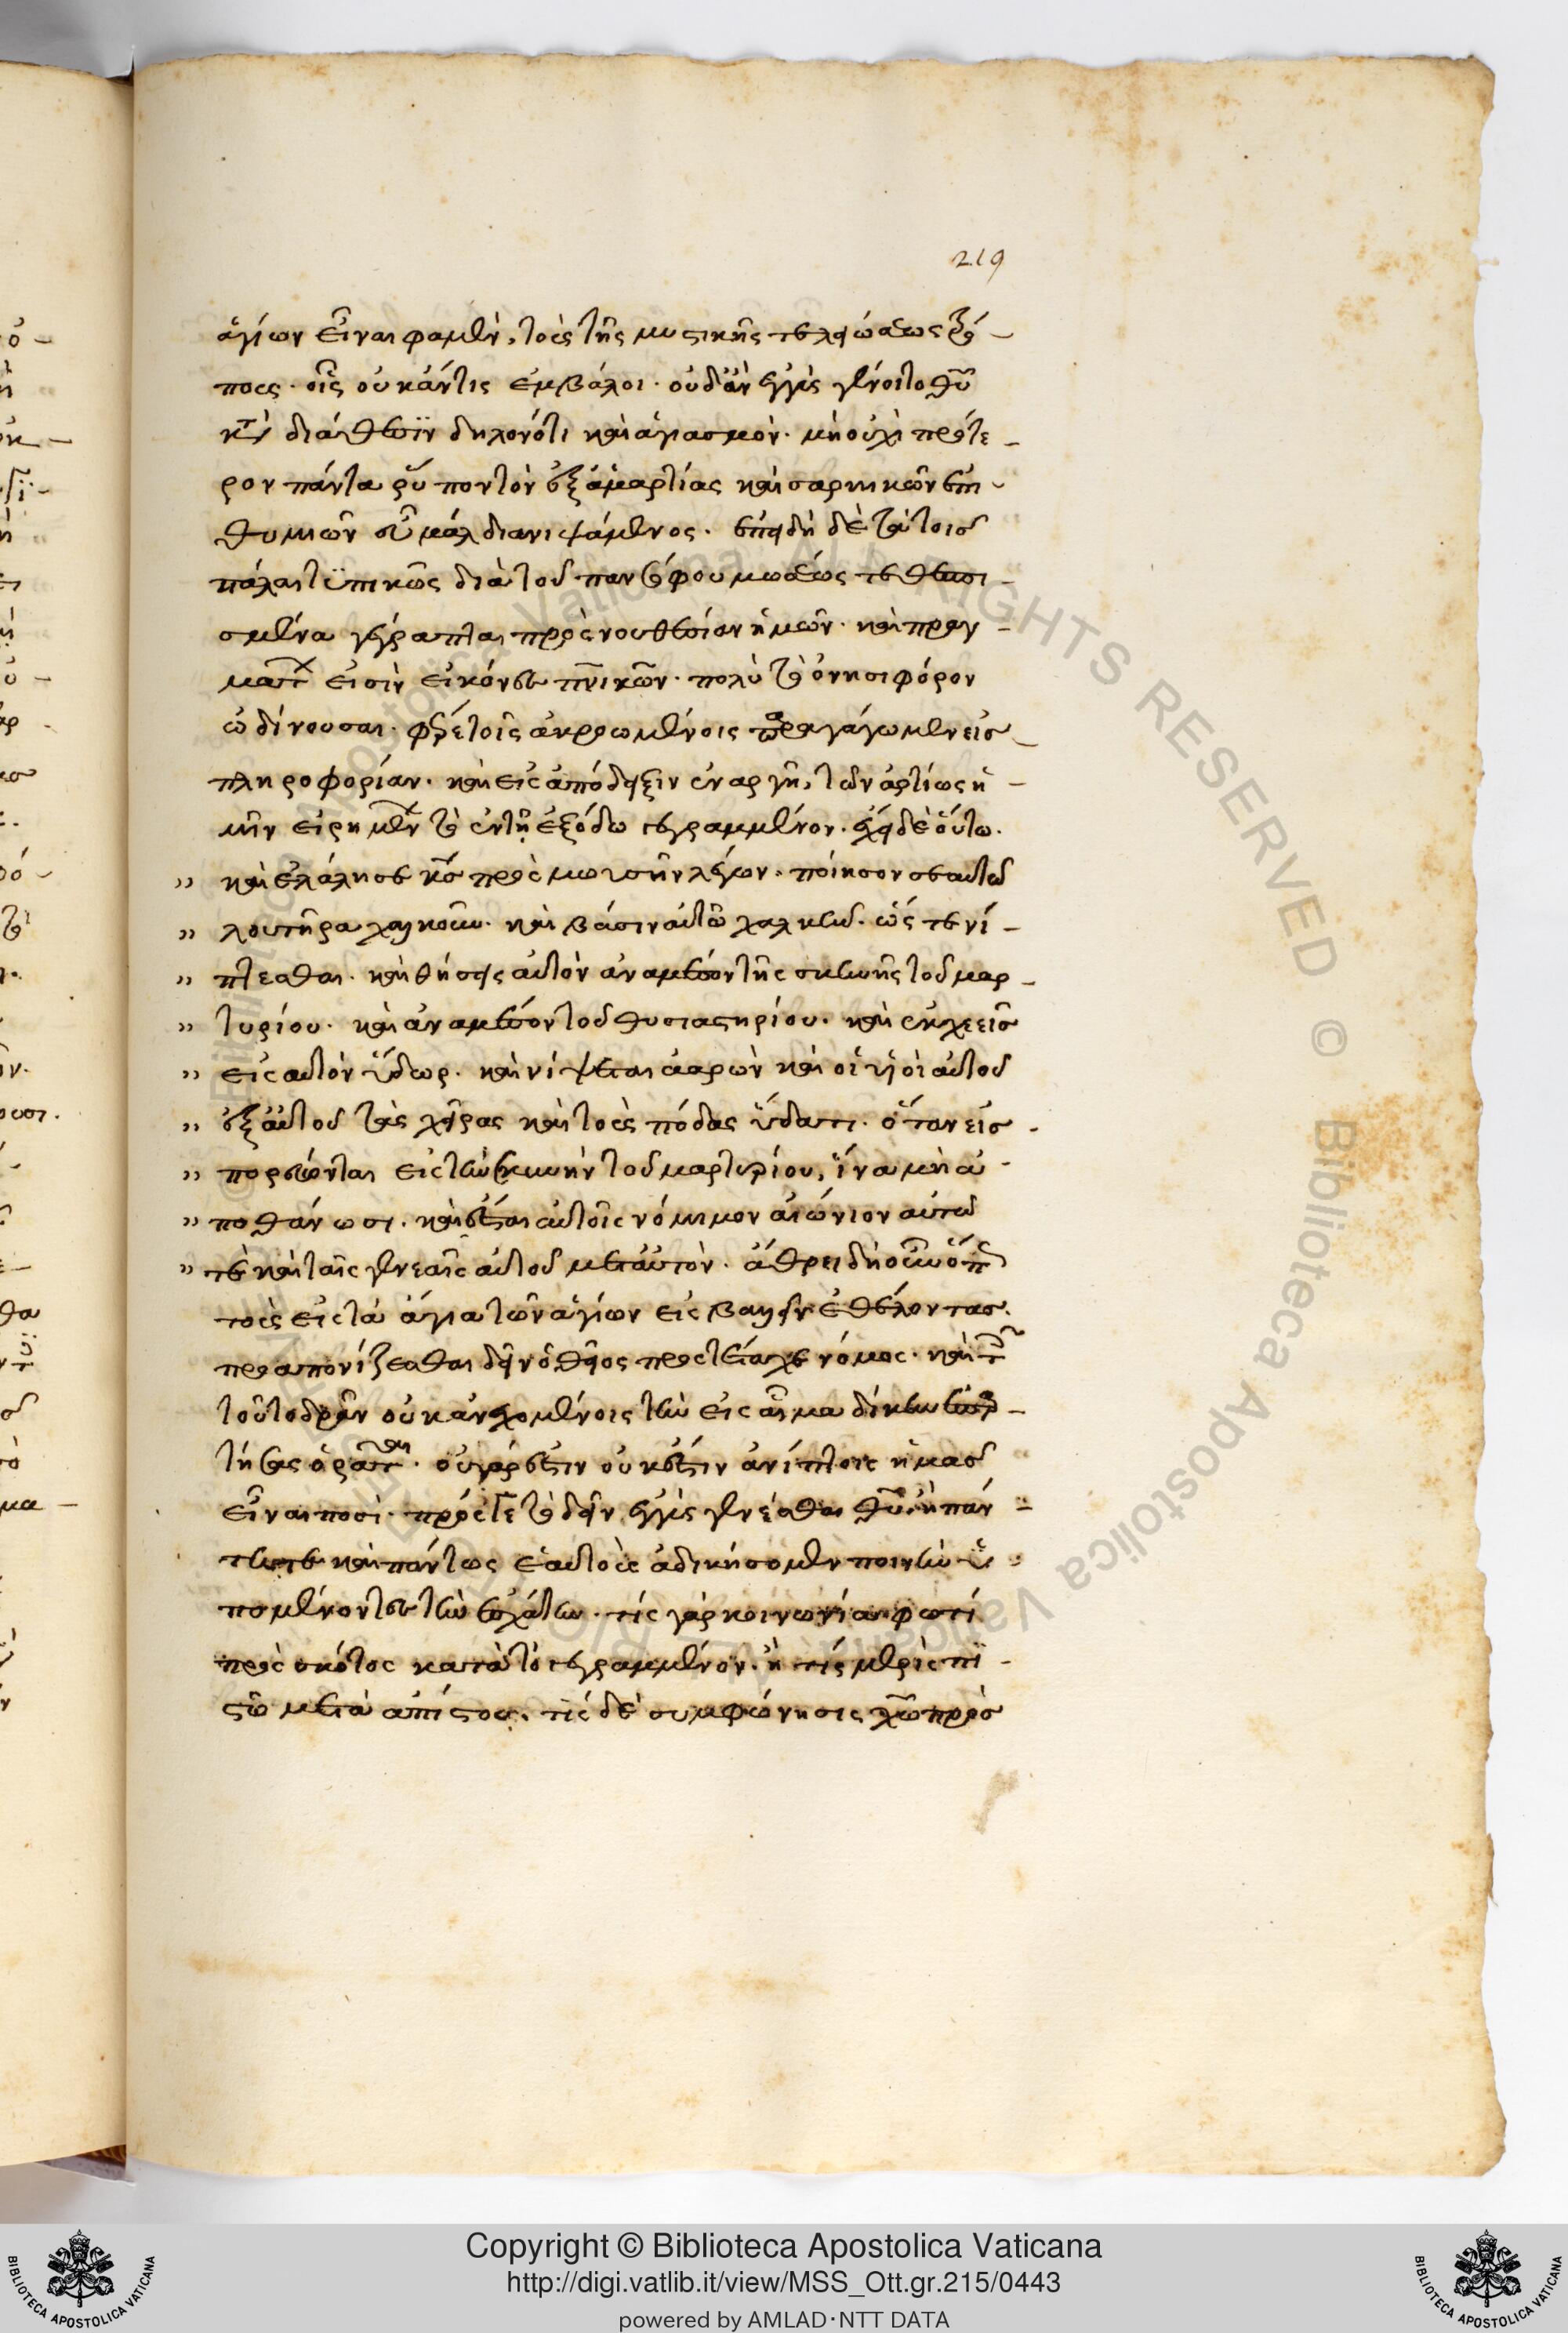 219
ἁγίων εἶναι φαμὲν, τοὺς τῆς μυστικῆς τελειώσεως τρό-
πους. οἷς οὐκ ἄν τις ἐμβάλοι. οὐδ' ἂν ἐγγὺς γένοιτο θῦ
κατὰ διάθεσϊν δηλονότι καὶ ἁγιασμὸν. μὴ οὐχὶ πρότε-
ρον πάντα ῥύπον τὸν ἐξ ἁμαρτίας καὶ σαρκικῶν ἐπι-
θυμιῶν εὖ μάλα διανιψάμενος. ἐπειδὴ δὲ τὰ τοῖς
πάλαι τϋπικῶς διὰ τοῦ πανσόφου μωσέως τεθεσπι-
σμένα γέγραπται πρὸς νουθεσίαν ἡμῶν. καὶ πραγ-
μάτων εἰσὶν εἰκόνες πνικῶν. πολὺ τὸ ὀνησιφόρον
ὠδίνουσαι. φέρε τοῖς ἀκροωμένοις παραγάγωμεν εἰς
πληροφορίαν. καὶ εἰς ἀπόδειξιν ἐναργῆ, τῶν ἀρτίως ἡ-
μῖν εἰρημένων τὸ ἐν τῇ ἐξόδω γεγραμμένον. ἔχει δὲ οὕτω.
" καὶ ἐλάλησε κς πρὸς μωυσῆν λέγων. ποίησον σεαυτῶ
" λουτῆρα χαλκοῦν. καὶ βάσιν αὐτῶ χαλκῆν. ὥς τε νί-
" πτεσθαι. καὶ θήσεις αὐτὸν ἀναμέσον τῆς σκηνῆς τοῦ μαρ-
" τυρίου. καὶ ἀναμέσον τοῦ θυσιαστηρίου. καὶ ἐκχεεῖς
" εἰς αὐτὸν ὕδωρ. καὶ νίψεται ἀαρὼν καὶ οἱ υἱοὶ αὐτοῦ
" ἐξ αὐτοῦ τὰς χεῖρας καὶ τοὺς πόδας ὕδατι. ὅταν εἰσ-
" πορεύωνται εἰς τὴν σκηνὴν τοῦ μαρτυρίου, ἵνα μὴ ἀ-
" ποθάνωσι. καὶ ἔσται αὐτοῖς νόμιμον αἰώνιον αὐτῶ
" τὲ καὶ ταῖς γενεαῖς αὐτοῦ μετ' αὐτὸν. ἄθρει δὴ οὖν ὅπως
τοὺς εἰς τὰ ἅγια τῶν ἁγίων εἰσβαίνειν ἐθέλοντας.
προαπονίζεσθαι δεῖν ὁ θεῖος προστέταχε νόμος. καὶ
τοῦτο δρᾶν οὐκ ἀνεχομένοις τὴν εἰς αἷμα δίκην
ὁρᾶται. οὐ γὰρ ἔστιν οὐκ ἔστιν ἀνίπτοις ἡμᾶς
εἶναι ποσὶ. πρός γε τὸ δεῖν ἐγγὺς γενέσθαι θῦ. ἢ πάν
τη τε καὶ πάντως ἑαυτοὺς ἀδικήσομεν ποινὴν ὑ-
πομένοντες τὴν ἐσχάτην. τίς γὰρ κοινωνία φωτὶ
πρὸς σκότος κατὰ τὸ γεγραμμένον. ἢ τίς μερὶς πϊ-
στῶ μετὰ ἀπίστου. τίς δὲ συμφώνησις χῶ πρὸς
Copyright © Biblioteca Apostolica Vaticana
http://digi.vatlib.it/view/MSS_Ott.gr.215/0443
powered by AMLAD·NTT DATA